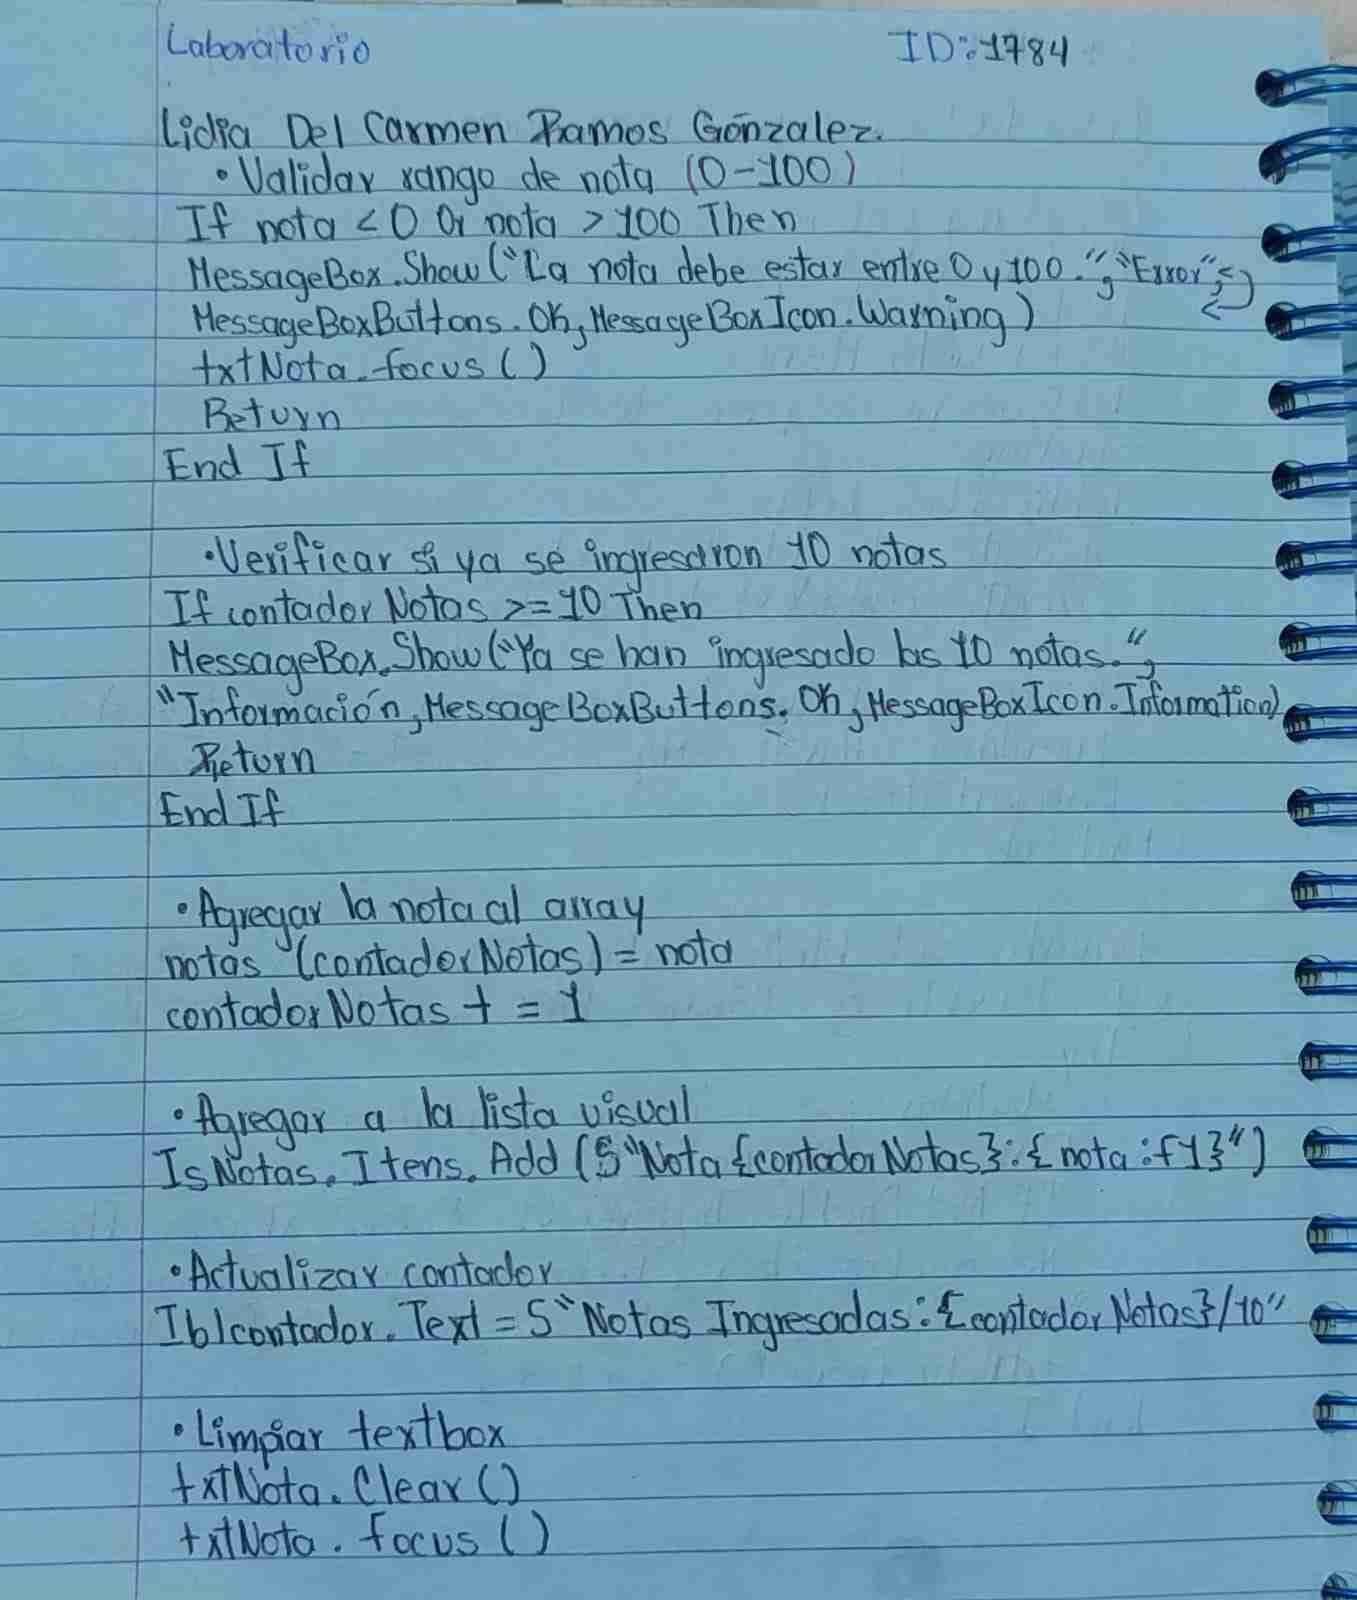 Laboratorio ID:1784
Lidia Del Carmen Ramos Gónzalez.
• Validar rango de nota (0-100)
If nota < 0 Or nota > 100 Then
MessageBox.Show("La nota debe estar entre 0 y 100.", "Error",
MessageBoxButtons.Ok, MessageBoxIcon.Warning)
txtNota.focus()
Return
End If
• Verificar si ya se ingresaron 10 notas
If contador Notas >= 10 Then
MessageBox.Show("Ya se han ingresado las 10 notas.",
"Información, MessageBoxButtons. Ok, MessageBoxIcon.Information)
Return
End If
• Agregar la nota al array
notas (contadorNotas) = nota
contadorNotas + = 1
• Agregar a la lista visual
IsNotas. Itens. Add (S"Nota {contadorNotas}:{nota:f1}")
• Actualizar contador
Iblcontador. Text = S"Notas Ingresadas:{contador Notas}/10"
• Limpiar textbox
txtNota. Clear()
txtNota. focus()